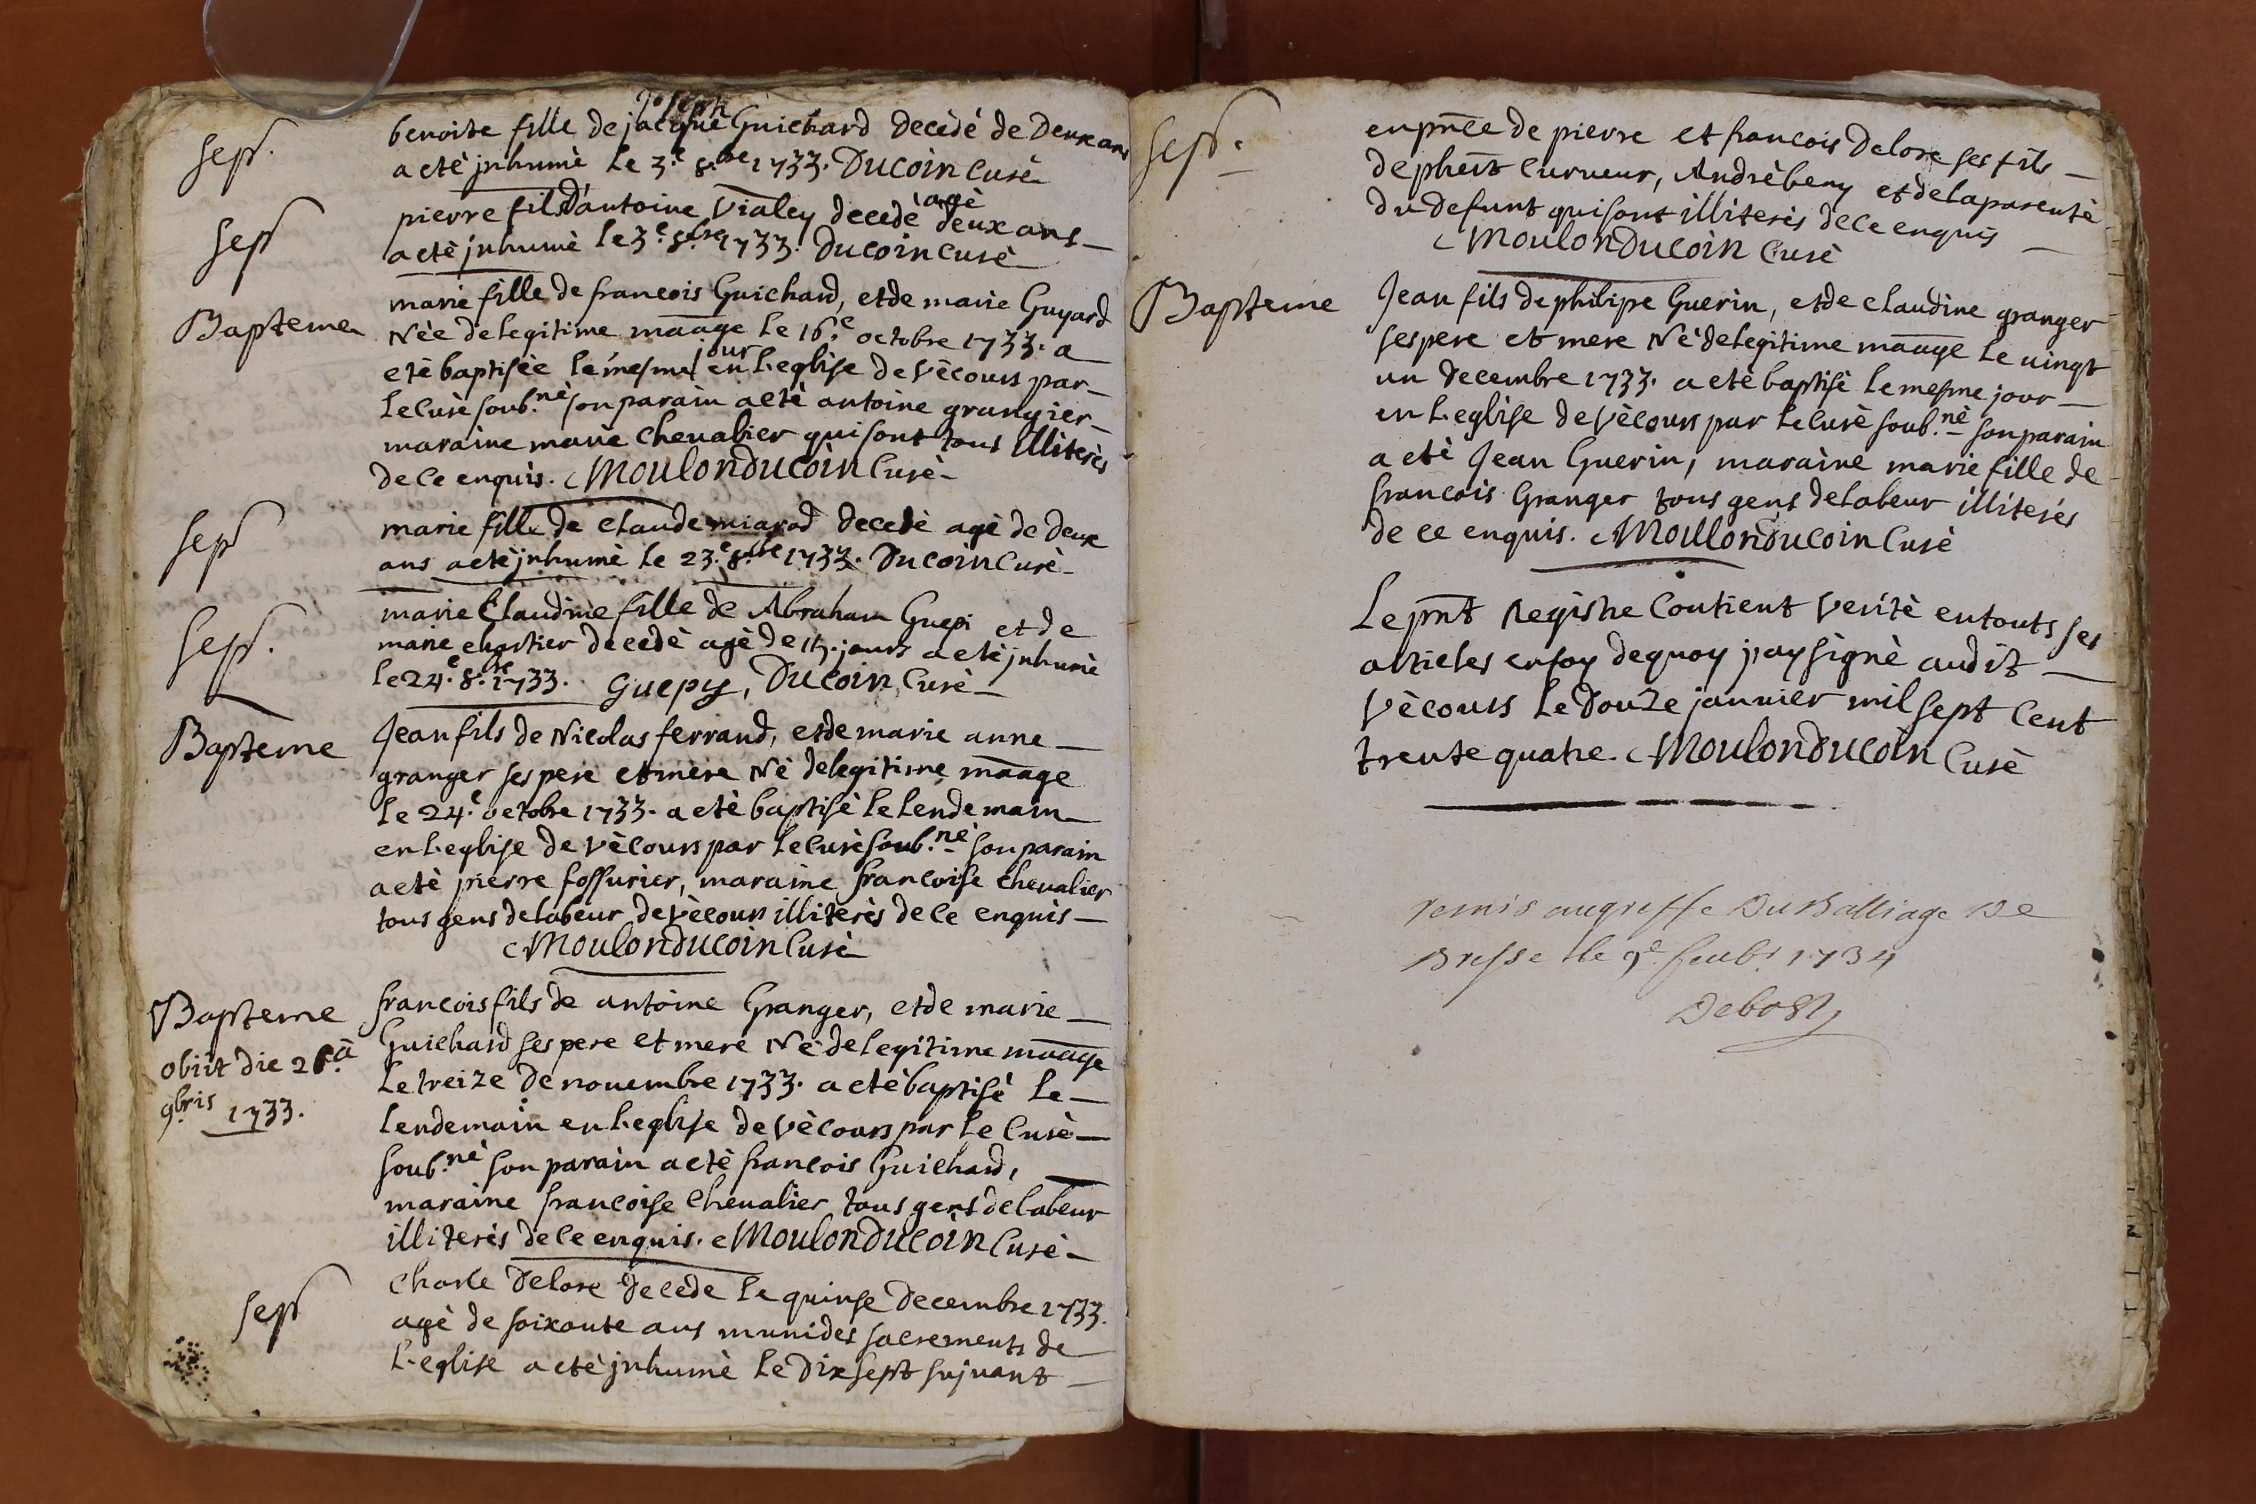 Joseph
sep. benoite fille de jacque Guichard decedé de Deux ans
a eté jnhumé le 3.e 8.bre 1733. Ducoin Curé
sep pierre fils D'antoine Vialey decedé agé deux ans
a eté jnhumé le 3.e 8.bre 1733. Ducoin curé
Bapteme marie fille de francois Guichard, et de marie Guyard
Née de legitime maage le 16.e octobre 1733. a
eté baptisée le mesme jour en L'eglise de Vécours par
le Curé soub.né son parain a eté antoine grangier
maraine marie Chevalier qui sont tous illiterés
de ce enquis. Moulonducoin Curé
sep marie fille de claude miarod decedé agé de deux
ans a eté jnhumé le 23.e 8.bre 1733. Ducoin Curé
sep. marie Claudine fille de Abraham Guepi et de
marie chartier decedé agé de 15. jours a eté jnhumé
le 24.e 8.bre 1733. Guepy, Ducoin, Curé
Bapteme Jean fils de Nicolas ferrand, et de marie anne
granger ses pere et mere Né de legitime maage
le 24.e octobre 1733. a eté baptisé le lendemain
en L'eglise de Vécours par le Curé soub.né son parain
a eté pierre fossurier, maraine francoise chevalier
tous gens de labeur de Vécours illiterés de ce enquis
Moulonducoin Curé
Bapteme francois fils de antoine Granger, et de marie
Guichard ses pere et mere Né de legitime maage
obiit die 26.a Le treize de novembre 1733. a eté baptisé le
9.bris 1733. lendemain en L'eglise de Vécours par le Curé
soub.né son parain a eté francois Guichard,
maraine francoise Chevalier tous gens de labeur
illiterés de ce enquis. Moulonducoin Curé
sep Charle Delore decede le quinse decembre 1733.
agé de soixante ans muni des sacrements de
L'eglise a eté jnhumé le Dix sept sujvant
sep. en pnce de pierre et francois Delore ses fils
de curveur, André beny et de la parenté
du defunt qui sont illiterés de ce enquis
Moulonducoin Curé
Bapteme Jean fils de philipe Guerin, et de claudine granger
ses pere et mere Né de legitime maage le uingt
un decembre 1733. a eté baptisé le mesme jour
en L'eglise de Vécours par le Curé soub.né son parain
a eté Jean Guerin, maraine marie fille de
francois Granger tous gens de labeur illiterés
de ce enquis. Moulonducoin Curé
Le pnt Registre Contient Verité en touts ses
articles en foy de quoy j'ay signé audit
Vécours le Douze janvier mil sept cent
trente quatre. Moulonducoin Curé
remis au greffe Du Balliage De
Bresse le 9.e feubr 1734
Debost